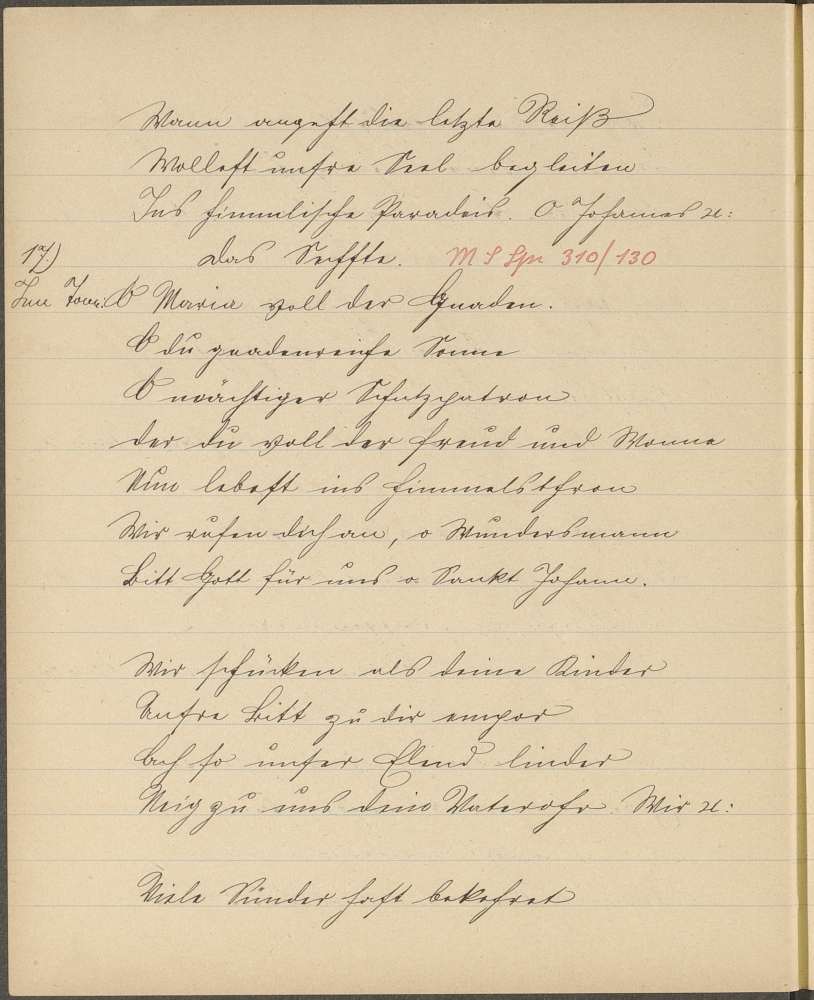 Wann angeht die letzte Reiß
Wollest unsre Seel begleiten
Ins himmlische Paradeis. O Johannes ꝛc:
17.) Das Sechste. M S Spr 310/130
Im Ton: O Maria voll der Gnaden.
O du gnadenreiche Sonne
O mächtiger Schutzpatron
der du voll der Freud und Wonne
Nun lebest ins Himmelsthron
Wir rufen dich an, o Wundersmann
Bitt Gott für uns o Sankt Johann.
Wir schicken als deine Kinder
Unsre Bitt zu dir empor
Ach so unser Elend linder
Neig zu uns dein Vaterohr. Wir ꝛc:
Viele Sünder hast bekehret